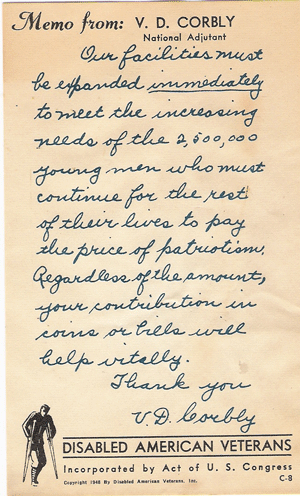 Memo from: V. D. CORBLY
National Adjutant
Our facilities must
be expanded immediately
to meet the increasing
needs of the 2,500,000
young men who must
continue for the rest
of their lives to pay
the price of patriotism.
Regardless of the amount,
your contribution in
coins or bills will
help vitally.
Thank you
V.D. Corbly
DISABLED AMERICAN VETERANS
Incorporated by Act of U. S. Congress
Copyright 1946 By Disabled American Veterans, Inc.
C-8